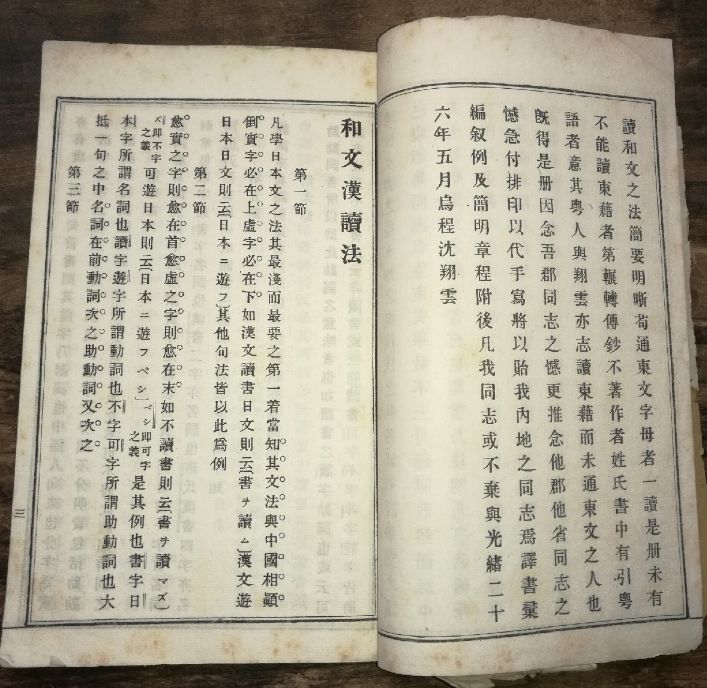 讀和文之法簡要明晰苟通東文字母者一讀是册未有
不能讀東籍者第輾轉傳鈔不著作者姓氏書中有引粤
語者意其粤人與翔雲亦志讀東籍而未通東文之人也
既得是册因念吾郡同志之憾更推念他郡他省同志之
憾急付排印以代手寫將以貽我內地之同志焉譯書彙
編叙例及簡明章程附後凡我同志或不棄與光緒二十
六年五月烏程沈翔雲
和文漢讀法
第一節
凡學日本文之法其最淺而最要之第一着當知其文法與中國相顚
倒實字必在上虛字必在下如漢文讀書日文則云(書ヲ讀ム)漢文遊
日本日文則云(日本ニ遊フ)其他句法皆以此爲例
第二節
愈實之字則愈在首愈虛之字則愈在末如不讀書則云(書ヲ讀マズ)
ズ即不字之義可遊日本則云(日本ニ遊フベシ)ベシ即可字之義是其例也書字日
本字所謂名詞也讀字遊字所謂動詞也不字可字所謂助動詞也大
抵一句之中名詞在前動詞次之助動詞又次之
第三節
三